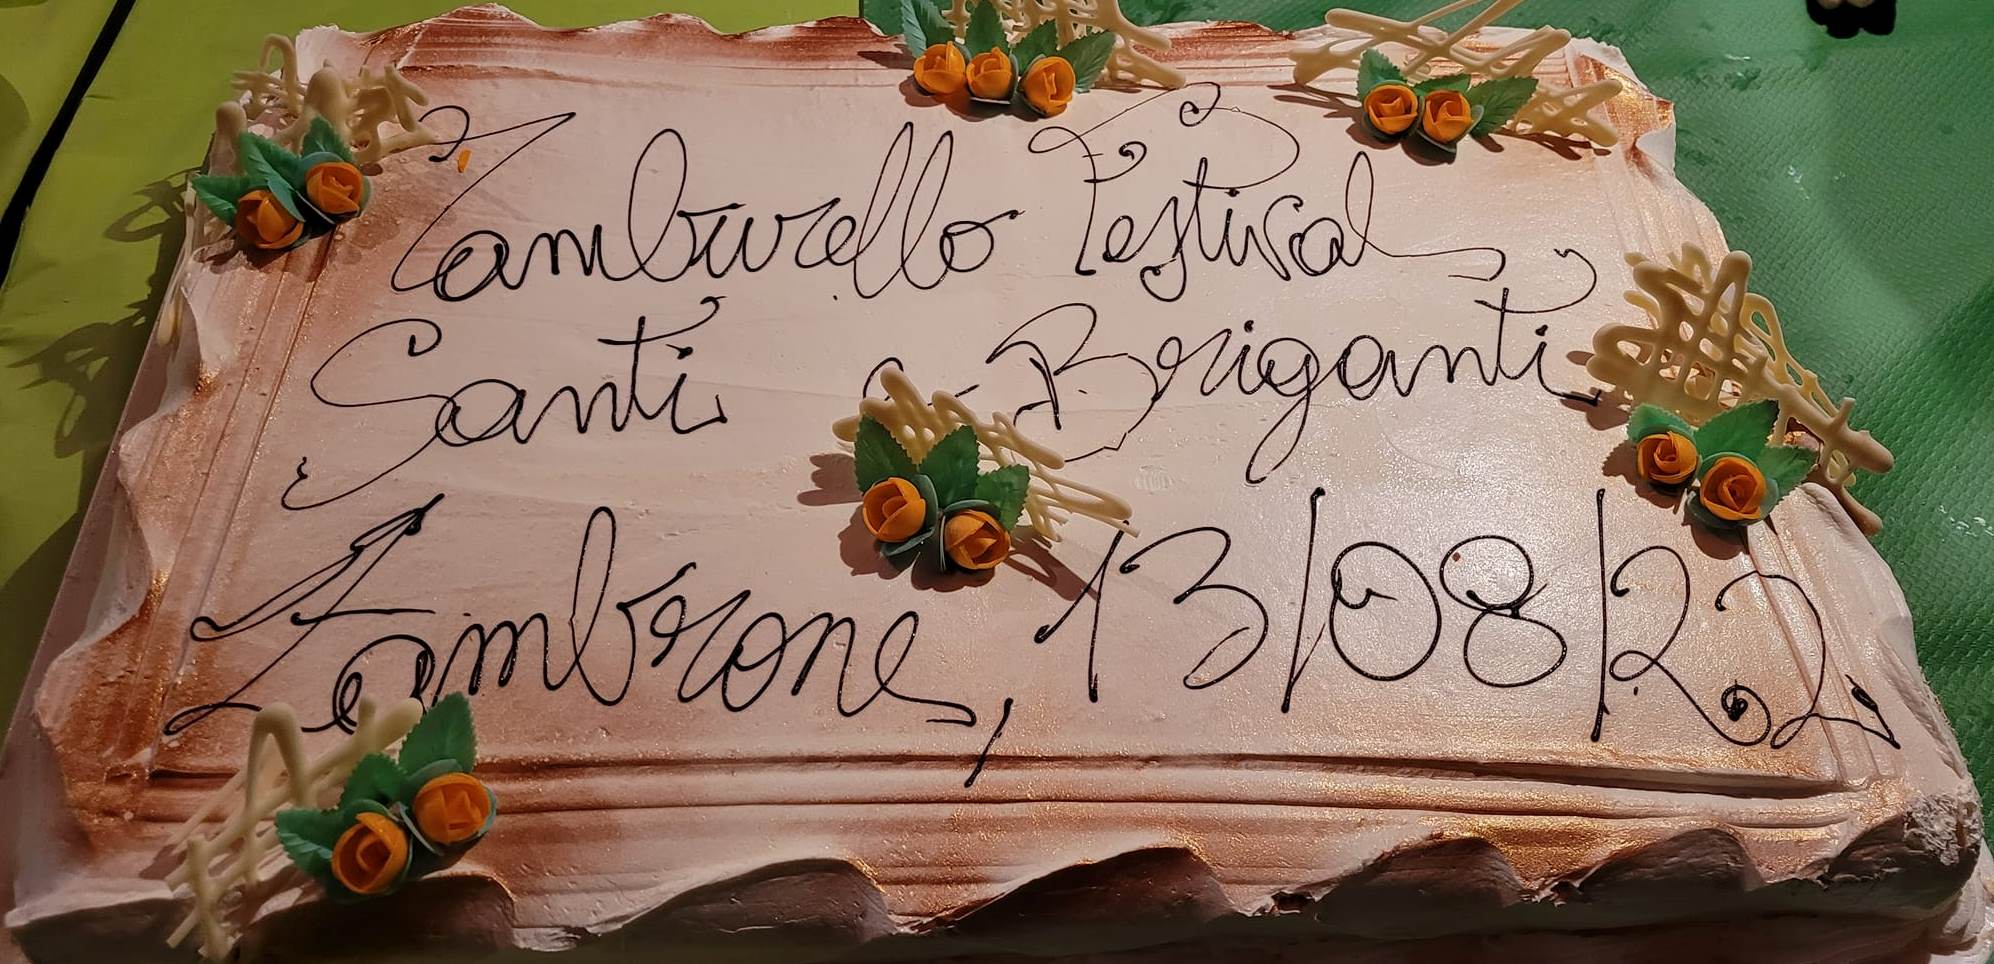 Tamburello Festival
Santi e Briganti
Zambrone, 13/08/22